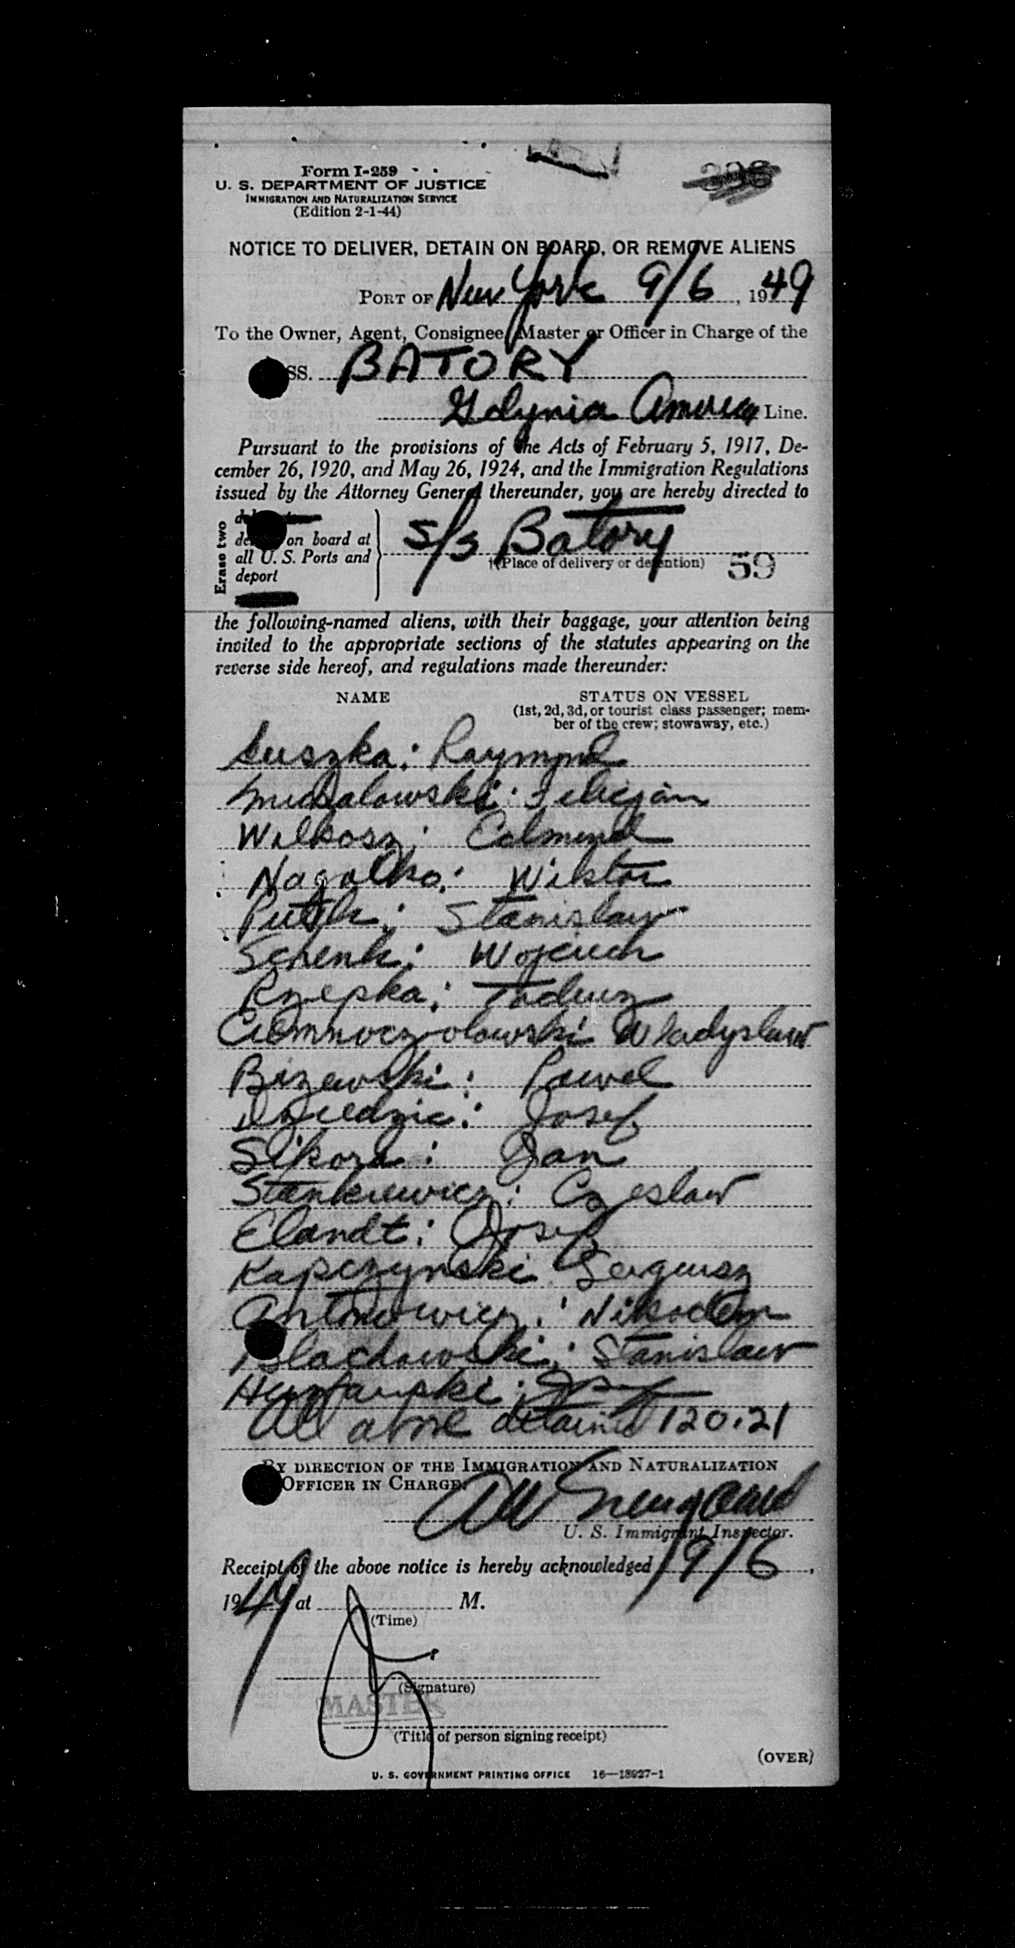 Form I-259
U. S. DEPARTMENT OF JUSTICE
IMMIGRATION AND NATURALIZATION SERVICE
(Edition 2-1-44)
336
NOTICE TO DELIVER, DETAIN ON BOARD, OR REMOVE ALIENS
PORT OF New York 9/6, 1949
To the Owner, Agent, Consignee, Master or Officer in Charge of the
SS. BATORY
Gdynia America Line.
Pursuant to the provisions of the Acts of February 5, 1917, De-
cember 26, 1920, and May 26, 1924, and the Immigration Regulations
issued by the Attorney General thereunder, you are hereby directed to
Erase two
on board at
all U. S. Ports and
deport
S/S Batory
†(Place of delivery or detention)
59
the following-named aliens, with their baggage, your attention being
invited to the appropriate sections of the statutes appearing on the
reverse side hereof, and regulations made thereunder:
NAME
STATUS ON VESSEL
(1st, 2d, 3d, or tourist class passenger; mem-
ber of the crew; stowaway, etc.)
Suszka: Raymond
Michalowski: Felicjan
Wilkosz: Edmund
Wiktor
Stanislaw
Schenk: Wojciech
Rzepka: Tadeusz
Wladyslaw
Bizewski: Pawel
Dziedzic: Josef
Sikora: Jan
Stankiewicz: Czeslaw
Elandt: Josef
Kapczynski Sergiusz
Antonowicz: Nikodem
Blachowski: Stanislaw
All above detained 120.21
BY DIRECTION OF THE IMMIGRATION AND NATURALIZATION
OFFICER IN CHARGE.
U. S. Immigrant Inspector.
Receipt of the above notice is hereby acknowledged 9/6,
1949 at M.
(Time)
(Signature)
MASTER
(Title of person signing receipt)
(OVER)
U. S. GOVERNMENT PRINTING OFFICE 16—18927-1